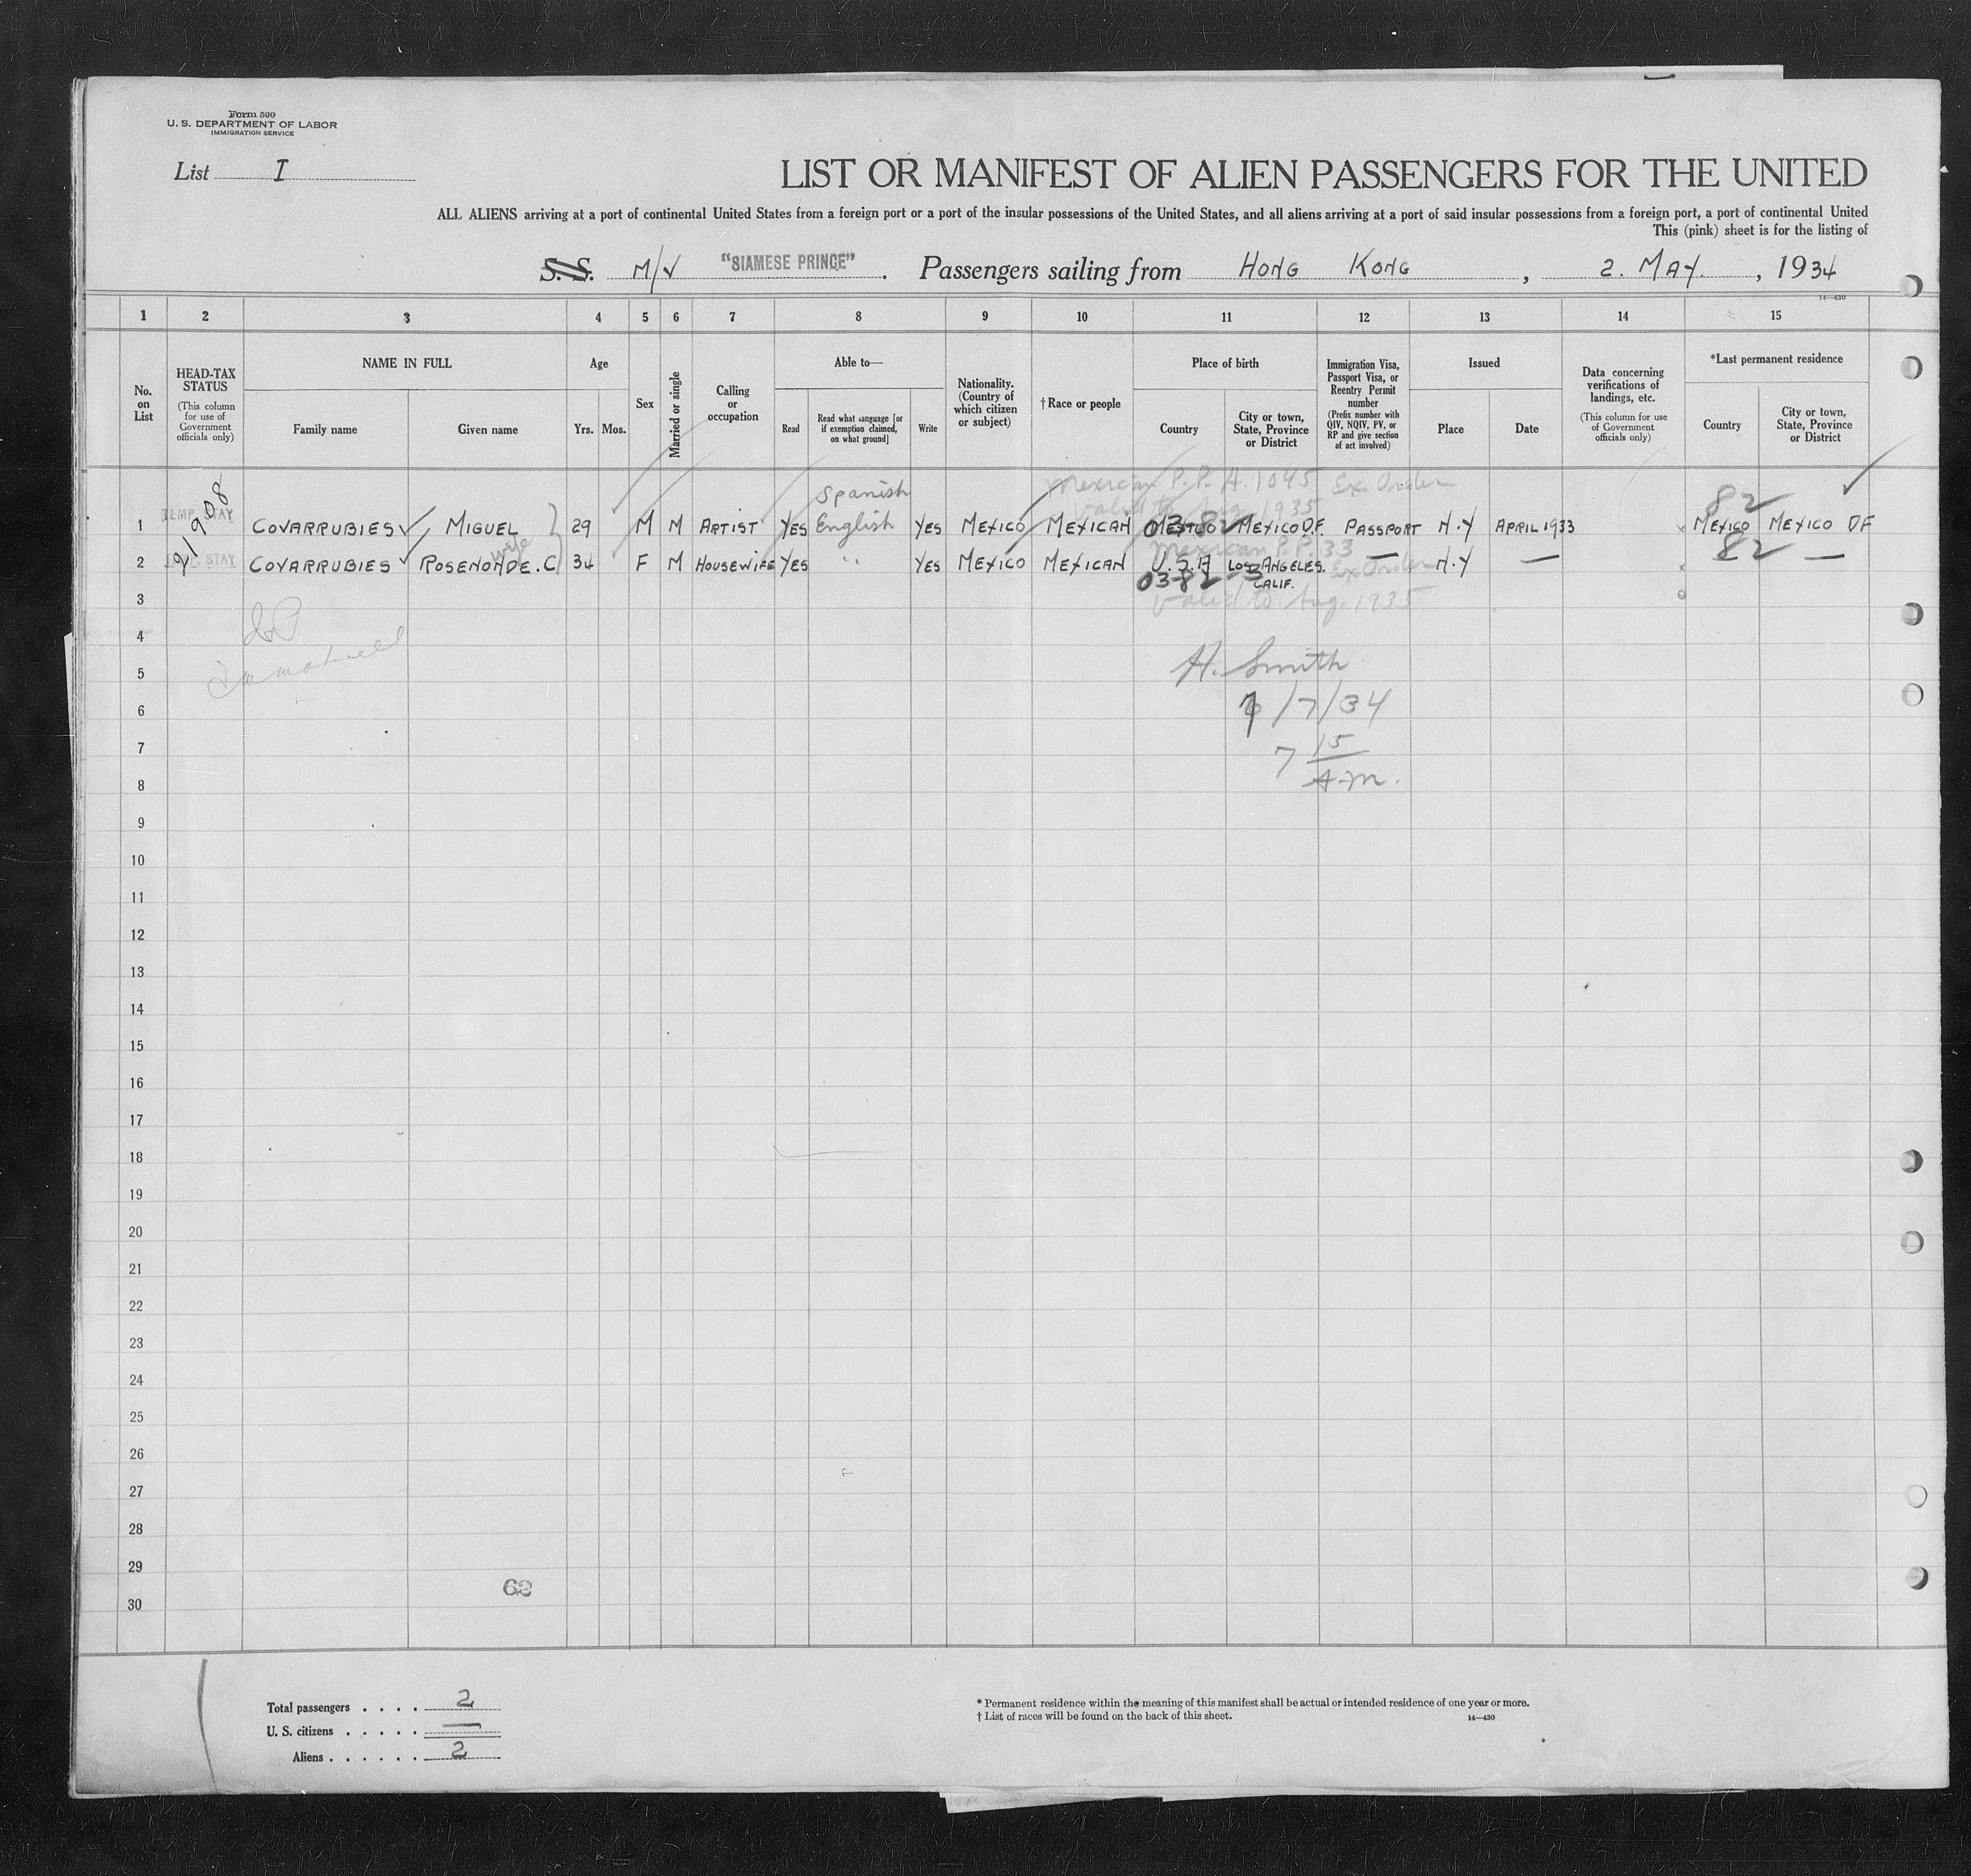 Form 500
U. S. DEPARTMENT OF LABOR
IMMIGRATION SERVICE
List I
LIST OR MANIFEST OF ALIEN PASSENGERS FOR THE UNITED
ALL ALIENS arriving at a port of continental United States from a foreign port or a port of the insular possessions of the United States, and all aliens arriving at a port of said insular possessions from a foreign port, a port of continental United
This (pink) sheet is for the listing of
S. S. M/V "SIAMESE PRINCE". Passengers sailing from HONG KONG, 2. MAY., 1934
14—430
1 2 3 4 5 6 7 8 9 10 11 12 13 14 15
No. on List
HEAD-TAX STATUS
(This column for use of Government officials only)
NAME IN FULL
Family name Given name
Age
Yrs. Mos.
Sex
Married or single
Calling or occupation
Able to—
Read
Read what language [or if exemption claimed, on what ground]
Write
Nationality. (Country of which citizen or subject)
†Race or people
Place of birth
Country
City or town, State, Province or District
Immigration Visa, Passport Visa, or Reentry Permit number
(Prefix number with QIV, NQIV, PV, or RP and give section of act involved)
Issued
Place Date
Data concerning verifications of landings, etc.
(This column for use of Government officials only)
*Last permanent residence
Country
City or town, State, Province or District
Mexican P.P. A.1045 Ex Order
Spanish
valid to Aug. 1935
82
TEMP. STAY
1 COVARRUBIES MIGUEL 29 M M ARTIST YES English YES MEXICO MEXICAN MEXICO MEXICO D.F. PASSPORT N.Y APRIL 1933 MEXICO MEXICO DF
03-82
wife
Mexican P.P. 33
82
STAY
2 COVARRUBIES ROSEMONDE.C 34 F M HOUSEWIFE YES " YES MEXICO MEXICAN U.S.A LOS ANGELES. CALIF. — Ex Order N.Y — —
03-82-3
valid to Aug. 1935
3
4
5
H. Smith
6
/7/34
7
7 15
A.M.
8
9
10
11
12
13
14
15
16
17
18
19
20
21
22
23
24
25
26
27
28
29
62
30
Total passengers . . . . 2
U. S. citizens . . . . . —
Aliens . . . . . . 2
* Permanent residence within the meaning of this manifest shall be actual or intended residence of one year or more.
† List of races will be found on the back of this sheet.
14—430